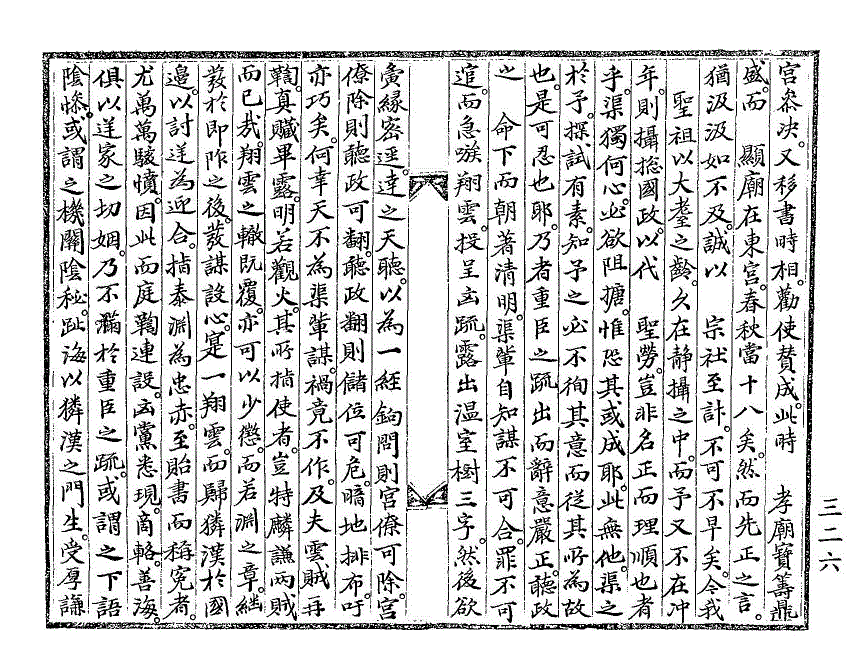 宮叅决。又移書時相。勸使贊成。此時　孝廟寶筭鼎
盛。而　顯廟在東宮。春秋當十八矣。然而先正之言。
猶汲汲如不及。誠以　宗社至計。不可不早矣。今我
聖祖以大耋之齡。久在静攝之中。而予又不在冲
年。則攝摠國政。以代　聖勞。豈非名正而理順也者
乎。渠獨何心。必欲阻搪。惟恐其或成耶。此無他。渠之
於予。探試有素。知予之必不徇其意而從其所為故
也。是可忍也耶。乃者重臣之疏出而辭意嚴正。聽政
之　命下而朝著清明。渠輩自知謀不可合。罪不可
逭。而急嗾翔雲。投呈凶疏。露出温室樹三字。然後欲
夤緣密逕。達之天聽。以為一經鉤問。則宮僚可除。宮
僚除則聽政可翻。聽政翻則儲位可危。暗地排布。吁
亦巧矣。何幸天不為渠輩謀。禍竟不作。及夫雲賊再
鞫。真贓畢露。明若觀火。其所指使者。豈特麟謙兩賊
而已哉。翔雲之轍旣覆。亦可以少懲。而若淵之章。繼
發於即阼之後。發謀設心。寔一翔雲。而歸獜漢於國
邊。以討逆為迎合。指泰淵為忠赤。至貽書而稱寃者。
尤萬萬駭憤。因此而庭鞫連設。凶黨悉現。商輅。善海。
俱以逆家之切姻。乃不滿於重臣之疏。或謂之下語
陰慘。或謂之機關陰秘。趾海以獜漢之門生。受厚謙
三二六